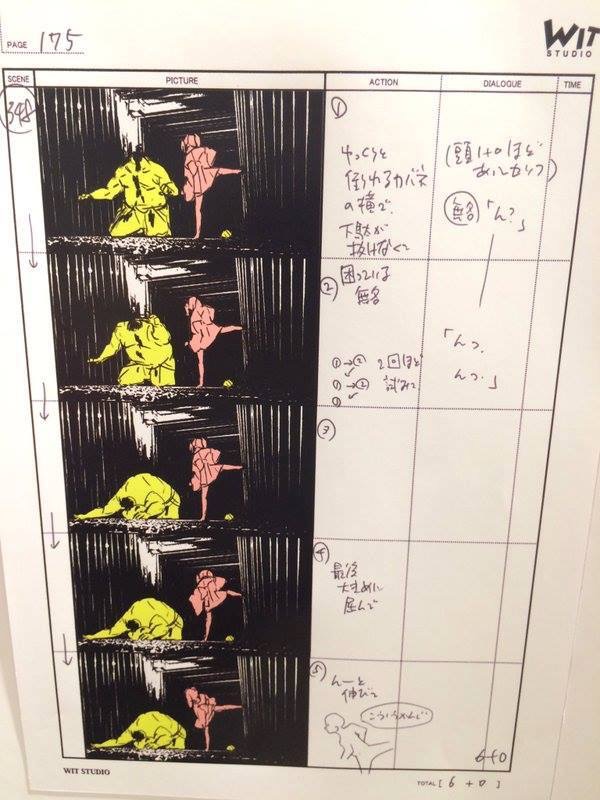 PAGE 175
WIT
STUDIO
SCENE PICTURE ACTION DIALOGUE TIME
348
①
ゆっくりと
倒れるカバネ
の横で、
下駄が
抜けなくて
(頭1+0ほど
あいカツ)
無名「ん?」
②
困っている
無名
①→②2回ほど
①→②試みて
①
「んっ、
んっ。」
③
④
最後
大きめに
屈んで
⑤
んーと
伸びて
6+0
WIT STUDIO
TOTAL [ 6 + 0 ]